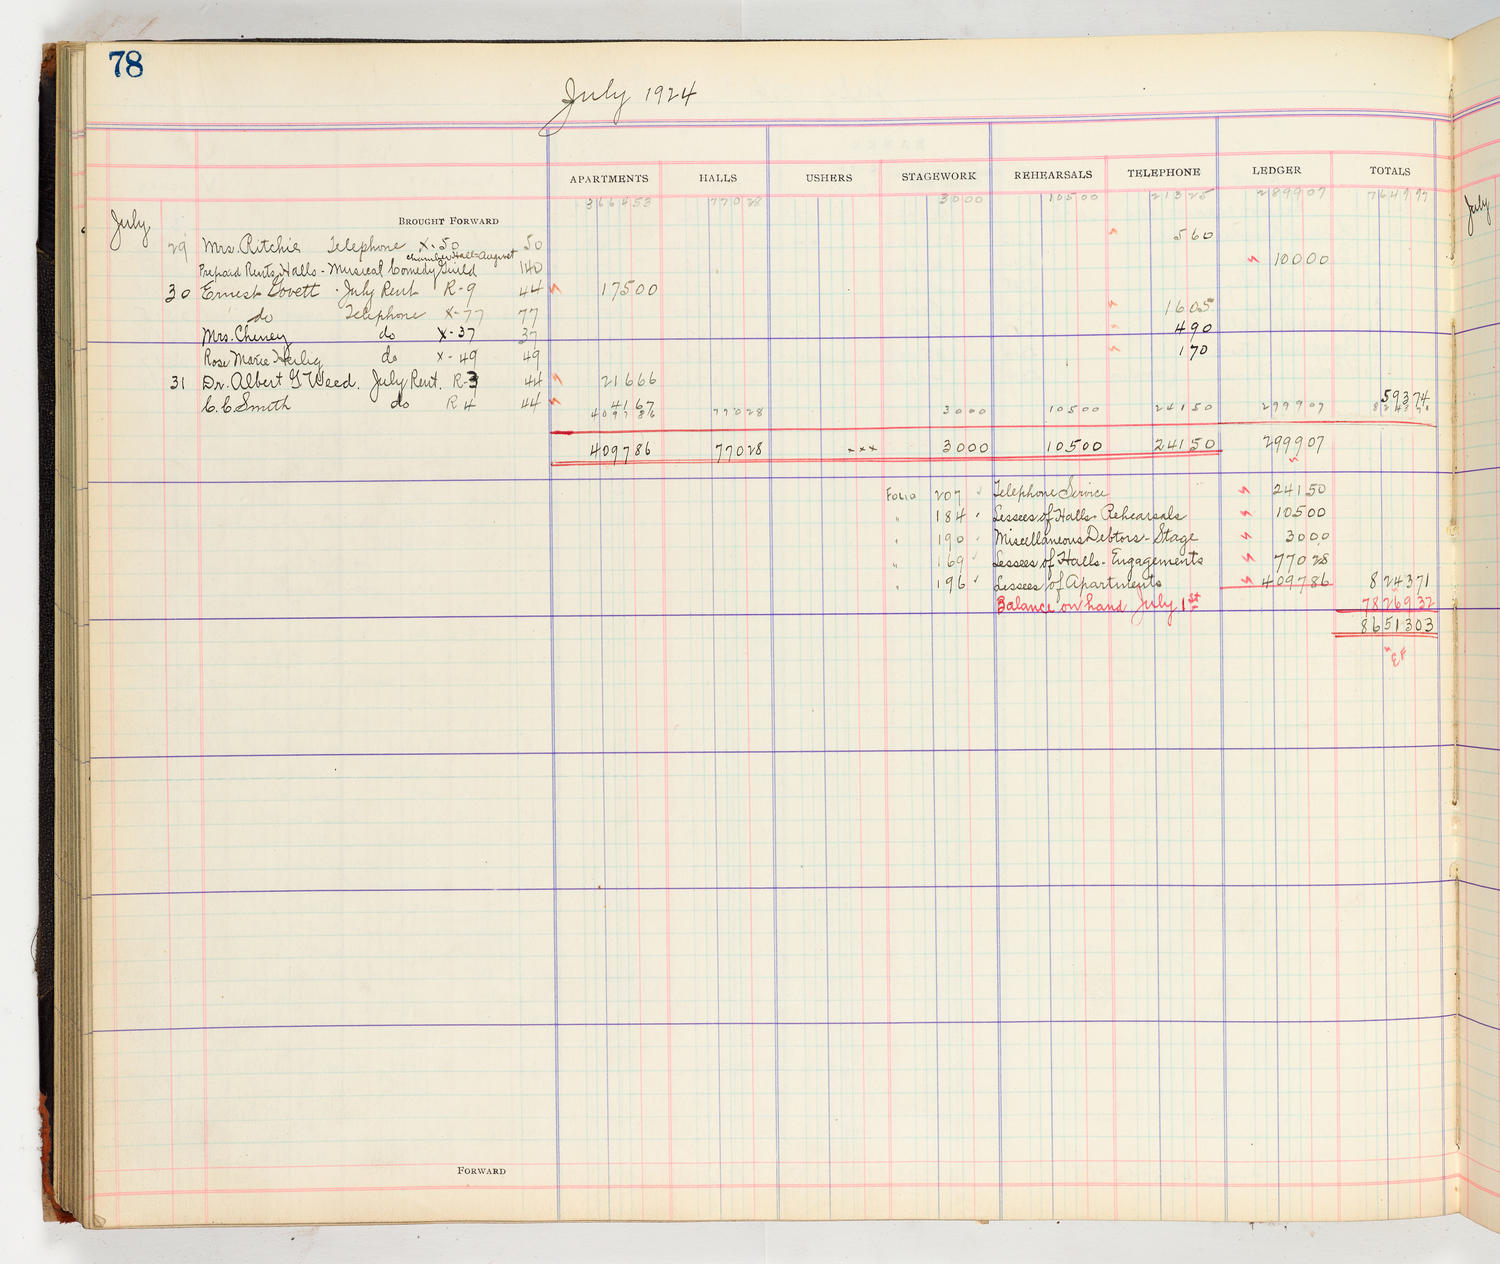 78
July 1924
APARTMENTS HALLS USHERS STAGEWORK REHEARSALS TELEPHONE LEDGER TOTALS
July BROUGHT FORWARD 366453 77028 3000 10500 21325 289907 764997
29 Mrs. Ritchie Telephone X-50 50 560
Chamber Hall-August
Prepaid Rents, Halls - Musical Comedy Guild 140 10000
30 Ernest Lovett July Rent R-9 44 17500
do Telephone X-77 77 1605
Mrs. Cheney do X-37 37 490
Rose Marie Heilig do X-49 49 170
31 Dr. Albert G Weed. July Rent. R-3 44 21666
C.C. Smith do R 4 44 4167 59374
409786 77028 3000 10500 24150 299907 824371
409786 77028 xxx 3000 10500 24150 299907
Folio 207 Telephone Service 24150
" 184 Lessees of Halls - Rehearsals 10500
" 190 Miscellaneous Debtors - Stage 3000
" 169 Lessees of Halls - Engagements 77028
" 196 Lessees of Apartments 409786 824371
Balance on hand July 1st 7826932
8651303
EF
FORWARD
July